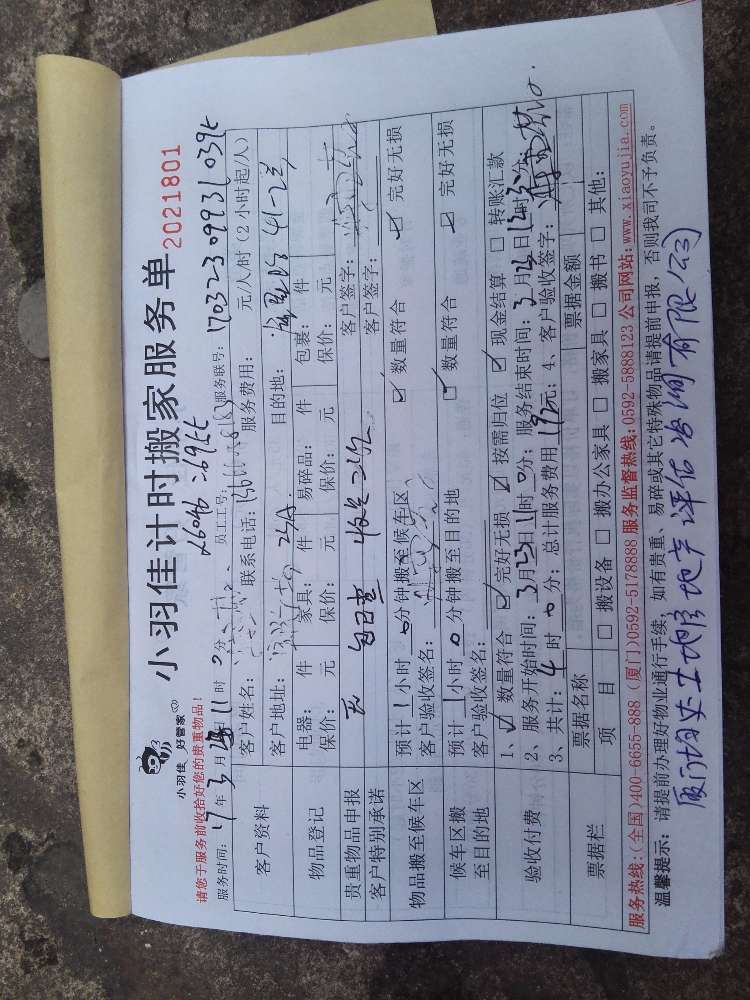 小羽佳 好管家
小羽佳计时搬家服务单 2021801
请您于服务前收拾好您的贵重物品！
服务时间：17年3月23日11时0分 员工工号： 服务联号：17032309931039t
客户资料
客户姓名： 联系电话： 服务费用： 元/人/时（2小时起/人）
客户地址： 目的地： 41-2
物品登记
电器： 件 家具： 件 易碎品： 件 包裹： 件
保价： 元 保价： 元 保价： 元 保价： 元
贵重物品申报 无 客户签字：
客户特别承诺 客户签字：
物品搬至候车区
预计1小时0分钟搬至候车区 ☑ 数量符合 ☑ 完好无损
客户验收签名：
候车区搬至目的地
预计1小时0分钟搬至目的地 ☑ 数量符合 ☑ 完好无损
客户验收签名：
验收付费
1、☑ 数量符合 ☑ 完好无损 ☑ 按需归位 ☑ 现金结算 □ 转账汇款
2、服务开始时间：3月23日11时0分；服务结束时间：3月 日 时 分；
3、共计：4时0分；总计服务费用 元；4、客户验收签字：
票据栏
票据名称 票据金额
项目 □ 搬设备 □ 搬办公家具 □ 搬家具 □ 搬书 □ 其他：
服务热线：（全国）400-6655-888 （厦门）0592-5178888 服务监督热线：0592-5888123 公司网站：www.xiaoyujia.com
温馨提示：请提前办理好物业通行手续，如有贵重、易碎或其它特殊物品请提前申报，否则我司不予负责。
厦门均达土地房地产评估咨询有限公司